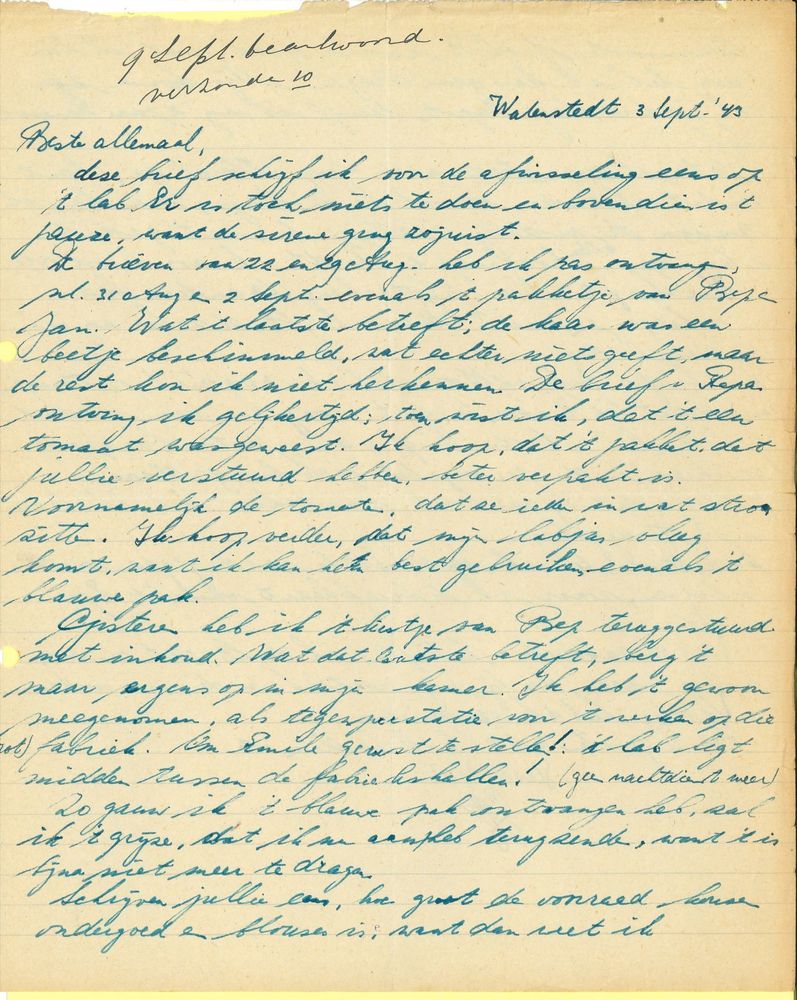 9 Sept. beantwoord.
verzonde 10
Walenstedt 3 Sept. '43
Beste allemaal,
deze brief schrijf ik voor de afwisseling eens op
't lab Er is toch niets te doen en bovendien is 't
pauze, want de sirene ging zojuist.
De brieven van 22 en 29 Aug. heb ik pas ontvang,
nl. 31 Aug en 2 Sept. evenals 't pakketje van Bep en
Jan. Wat 't laatste betreft; de kaas was een
beetje beschimmeld, wat echter niets geeft, maar
de rest kon ik niet herkennen De brief v Bepa
ontving ik gelijkertijd; toen wist ik, dat 't een
tomaat was geweest. Ik hoop, dat 't pakket, dat
jullie verstuurd hebben, beter verpakt is.
Voornamelijk de tomate, dat ze ieder in wat stroo
zitte. Ik hoop verder, dat mijn labjas vlug
komt, want ik kan hem best gebruiken, evenals 't
blauwe pak.
Gistere heb ik 't kistje van Bep teruggestuurd
met inhoud. Wat dat laatste betreft, berg 't
maar ergens op in mijn kamer. Ik heb 't gewoon
meegenomen, als tegenprestatie voor 't werken op die
rot) fabriek. Om Emile gerust te stelle!: 't lab ligt
midden tussen de fabriekshallen.! (geen nachtdienst meer)
Zo gauw ik 't blauwe pak ontvangen heb, zal
ik 't grijze, dat ik nu aanheb terugzende, want 't is
bijna niet meer te dragen
Schrijven jullie eens, hoe groot de voorraad kousen
ondergoed en blouses is, want dan weet ik